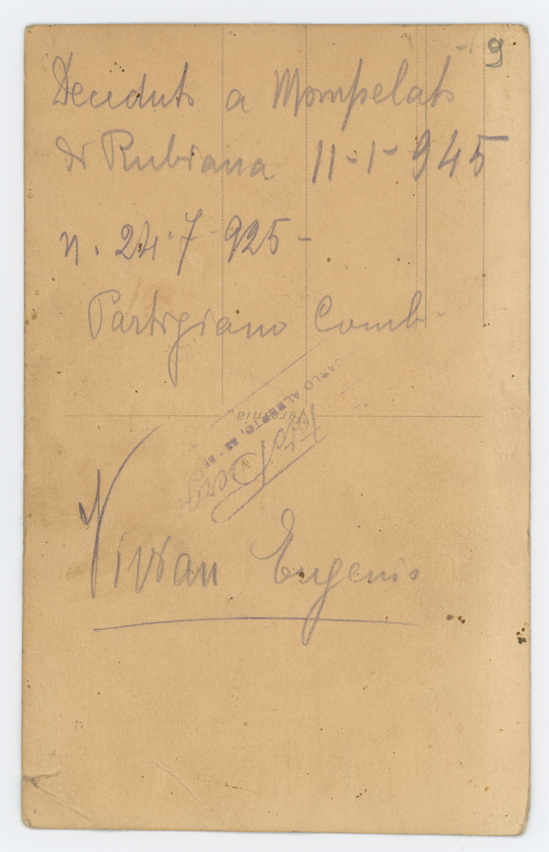 9
Deceduto a Mompelato
di Rubiana 11-1-945
n. 24.7.925-
Partigiano Comb.
CARLO ALBERTO,
Foto Berg
Vivian Eugenio